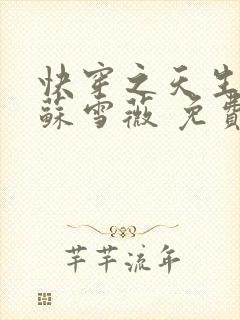 快穿之天生
蘇雪薇 免費
芊芊流年